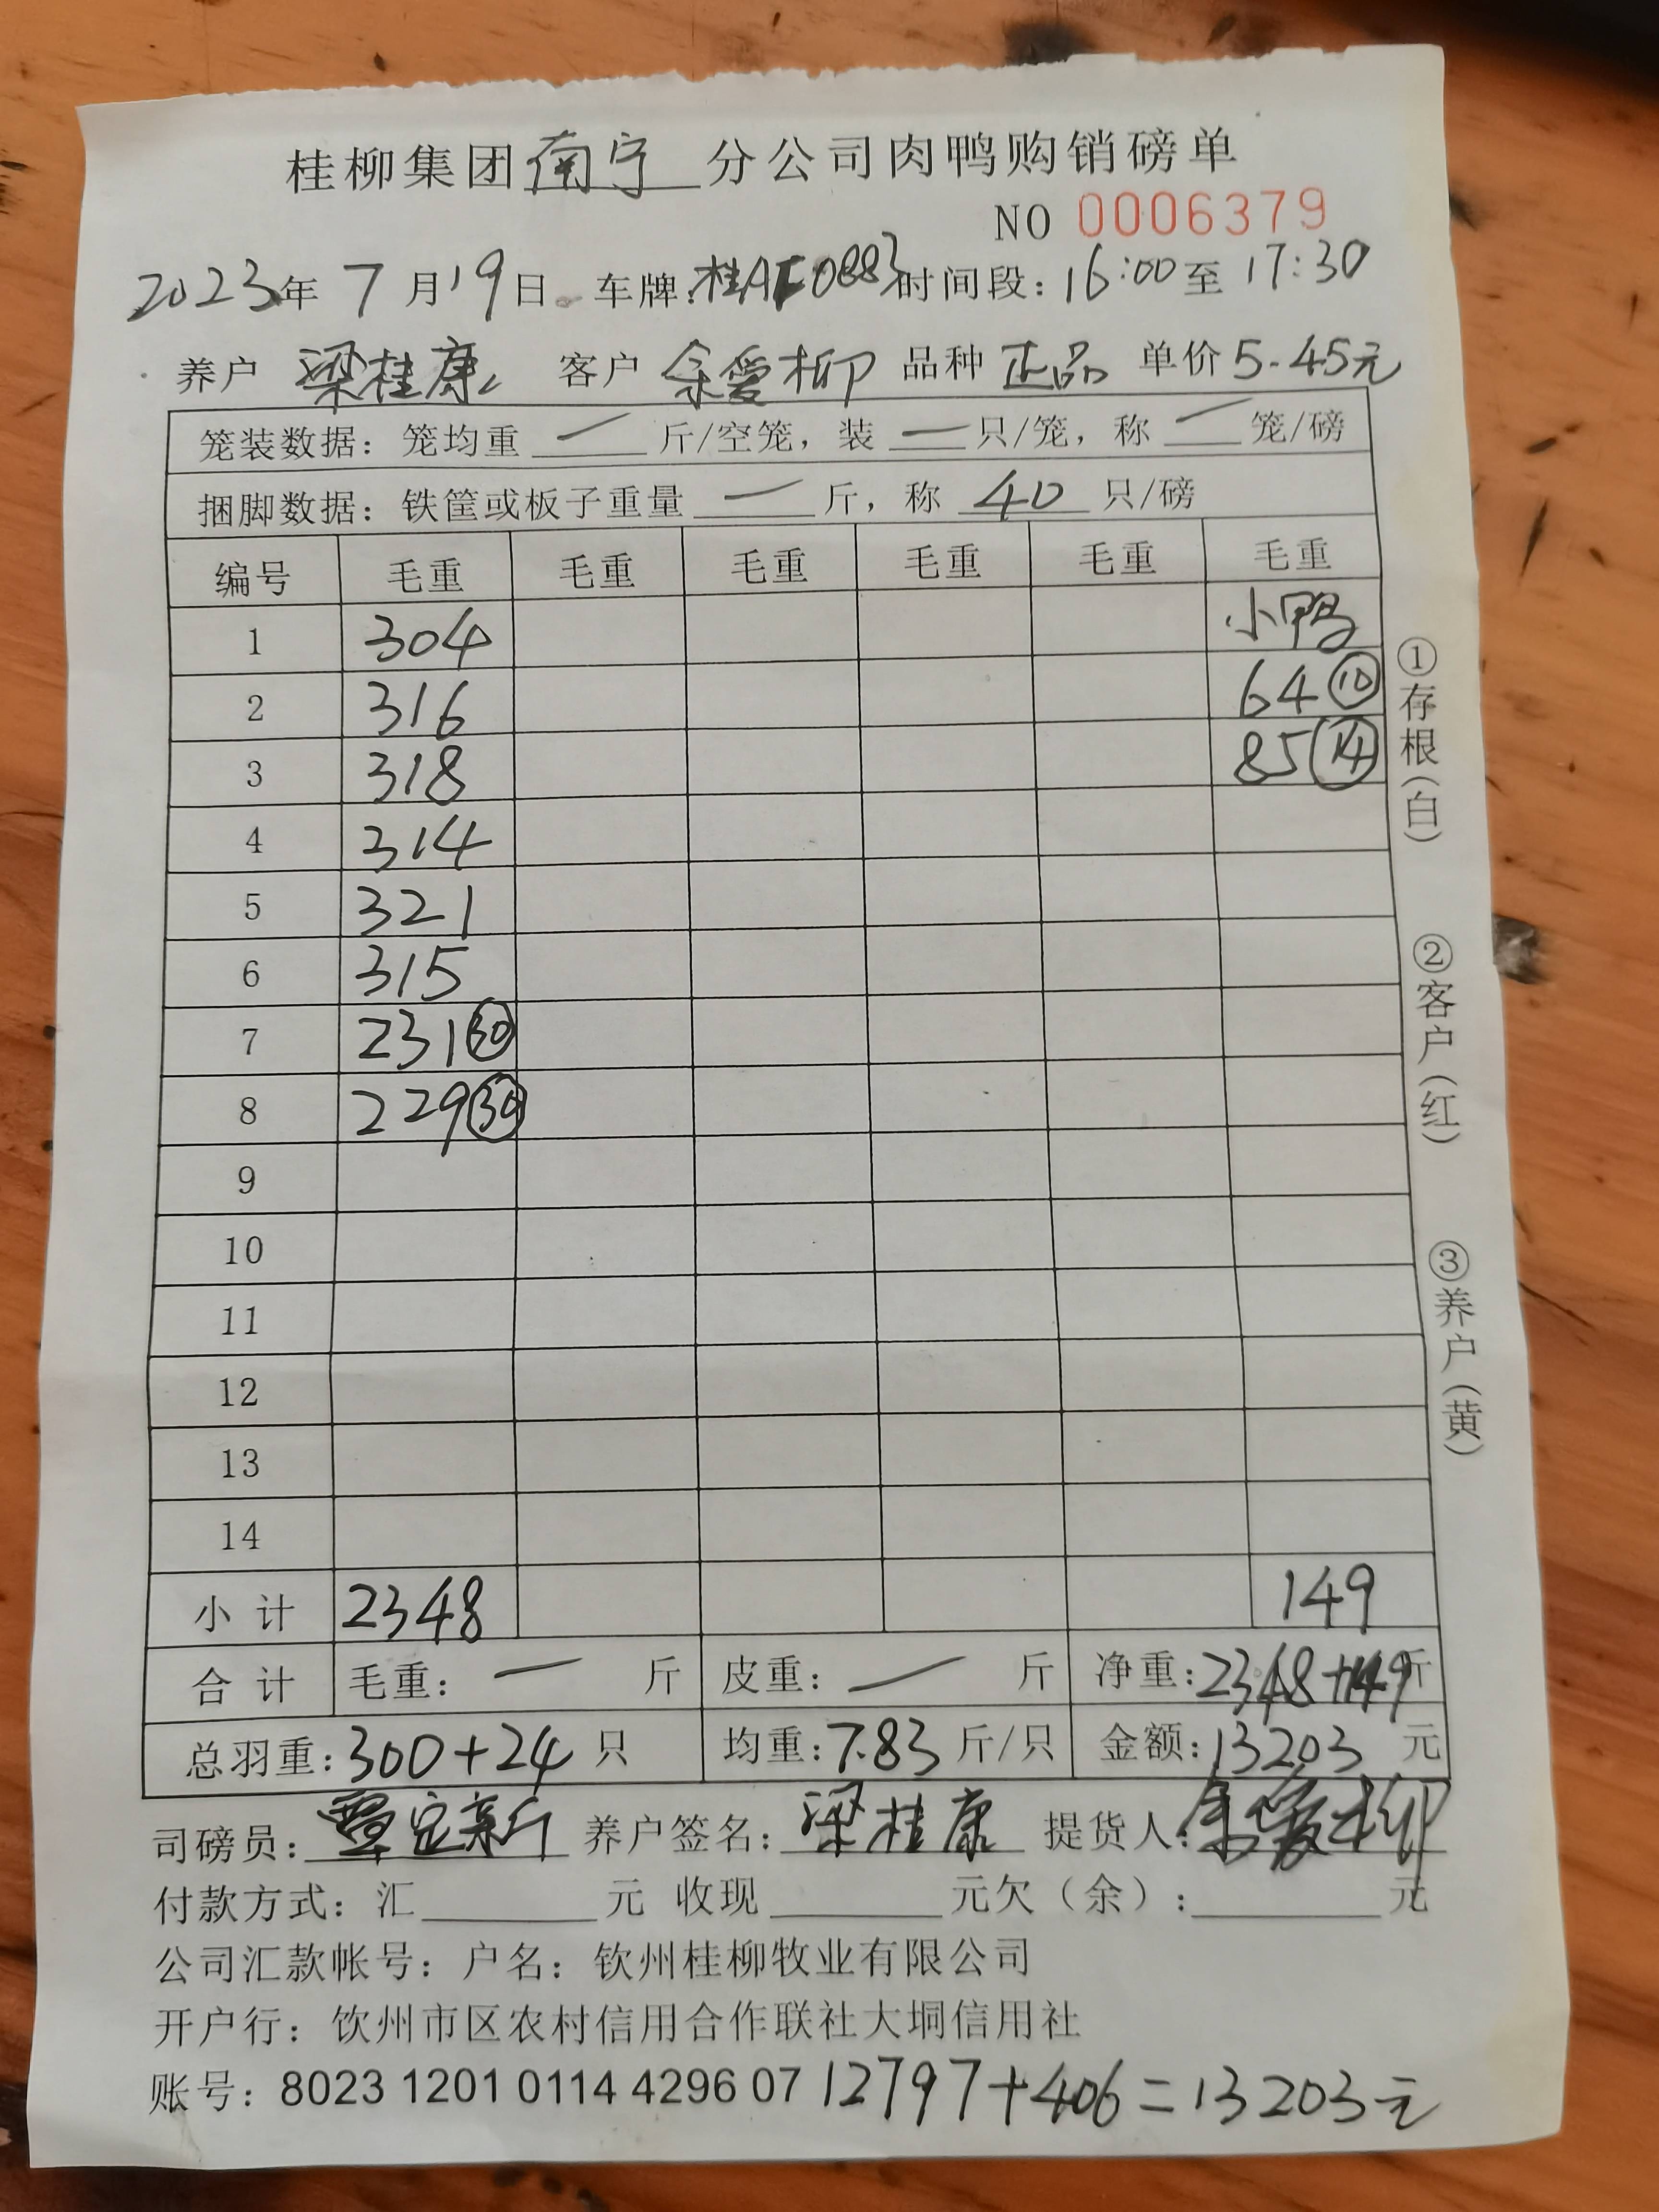 桂柳集团南宁分公司肉鸭购销磅单
NO 0006379
2023年 7月19日 车牌:桂A 0883 时间段:16:00至17:30
养户 梁桂康 客户 余爱柳 品种 正品 单价 5.45元
笼装数据:笼均重 一 斤/空笼,装 一 只/笼,称 一 笼/磅
捆脚数据:铁筐或板子重量 一 斤,称 40 只/磅
编号 毛重 毛重 毛重 毛重 毛重 毛重
1 304 小鸭
2 316 64⑩
3 318 85⑭
4 314
5 321
6 315
7 231㉚
8 229㉚
9
10
11
12
13
14
小计 2348 149
合计 毛重:一 斤 皮重:一 斤 净重:2348+149斤
总羽重:300+24 只 均重:7.83 斤/只 金额:13203 元
司磅员:覃宝新 养户签名:梁桂康 提货人:余爱柳
付款方式:汇 元 收现 元欠(余): 元
公司汇款帐号:户名:钦州桂柳牧业有限公司
开户行:钦州市区农村信用合作联社大垌信用社
账号:8023 1201 0114 4296 07 12797+406=13203元
①存根(白)
②客户(红)
③养户(黄)